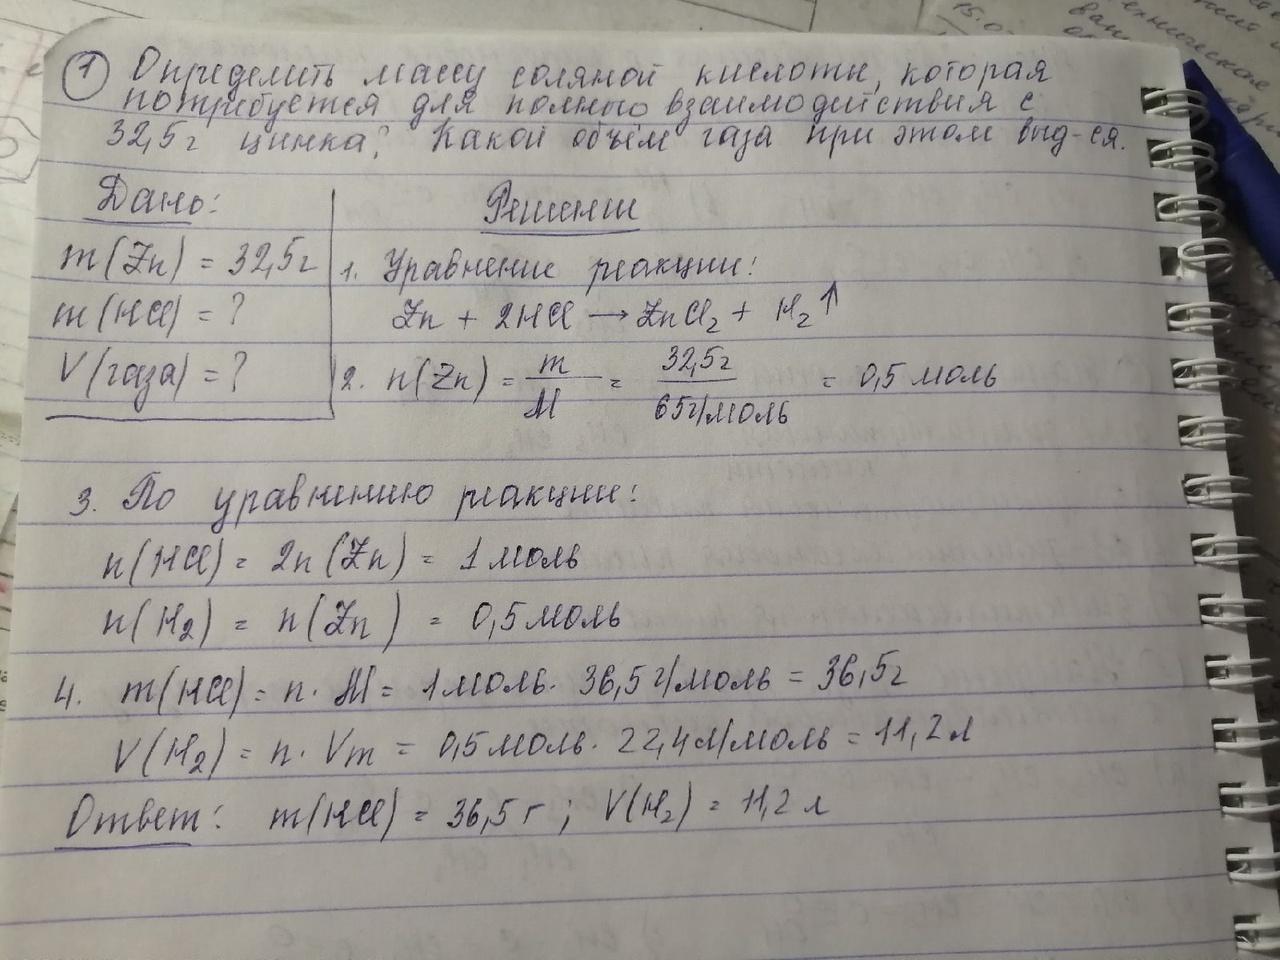 1 Определить массу соляной кислоты, которая
потребуется для полного взаимодействия с
32,5г цинка? Какой объём газа при этом выд-ся.
Дано:
m(Zn) = 32,5г
m(HCl) = ?
V(газа) = ?
Решение
1. Уравнение реакции:
Zn + 2HCl → ZnCl₂ + H₂↑
2. n(Zn) = m/M = 32,5г/65г/моль = 0,5 моль
3. По уравнению реакции:
n(HCl) = 2n(Zn) = 1 моль
n(H₂) = n(Zn) = 0,5 моль
4. m(HCl) = n · M = 1 моль · 36,5 г/моль = 36,5г
V(H₂) = n · Vm = 0,5 моль · 22,4 л/моль = 11,2 л
Ответ: m(HCl) = 36,5 г ; V(H₂) = 11,2 л
15.0